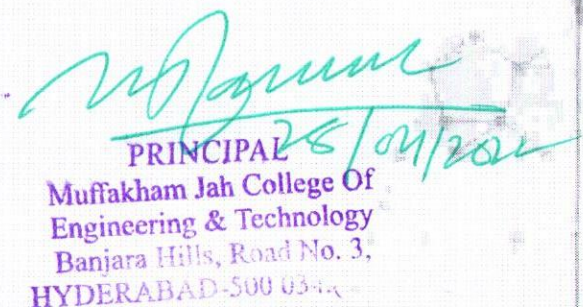 PRINCIPAL
Muffakham Jah College Of
Engineering & Technology
Banjara Hills, Road No. 3,
HYDERABAD-500 034.